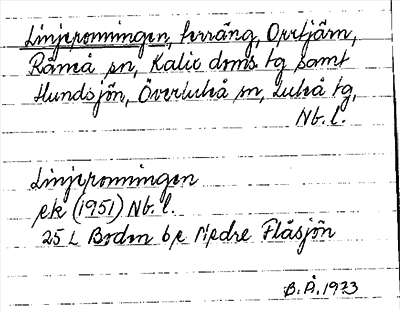 Linjeronningen, terräng, Orrtjärn,
Råneå sn, Kalix doms tg samt
Hundsjön, Överluleå sn, Luleå tg,
Nb. l.
Linjeronningen
ek (1951) Nb. l.
25 L Boden 6e Nedre Flåsjön
B.Å. 1973